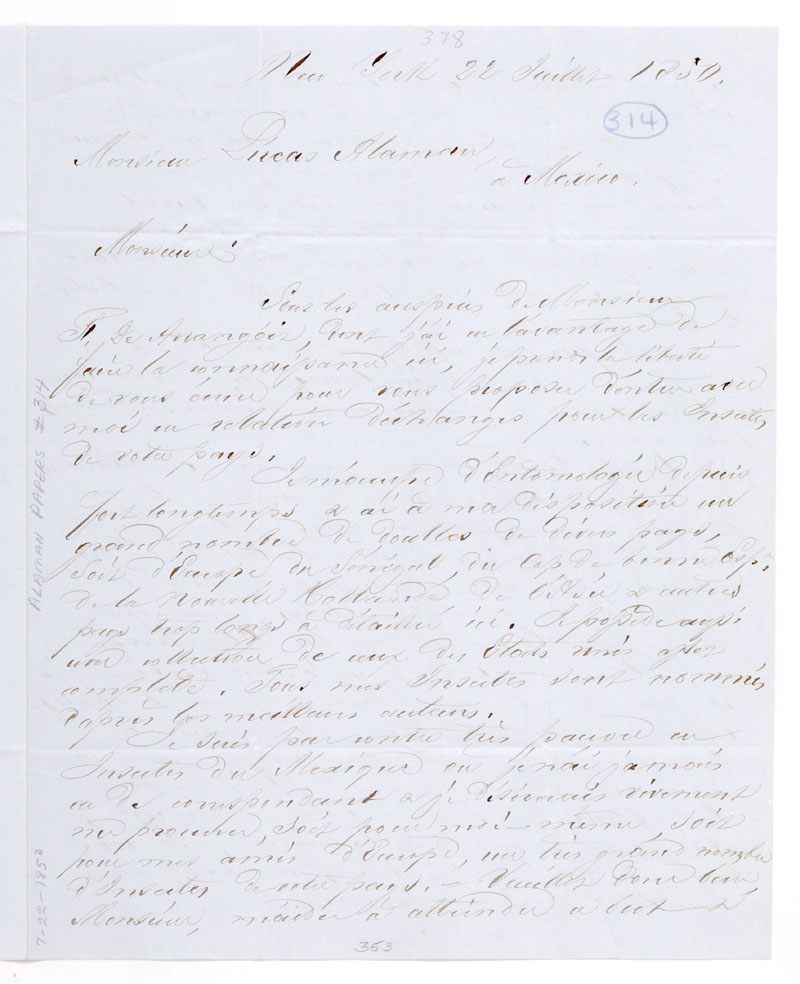 378
New York 22 Juillet 1850.
314
Monsieur Lucas Alaman,
à Mexico.
Monsieur
Sous les auspices de Monsieur
F. De Arrangóiz, dont j'ai eu l'avantage de
faire la connaissance ici, je prends la liberté
de vous écrire pour vous proposer d'entrer avec
moi en relation d'échanges pour les Insectes
de votre pays.
Je m'occupe d'Entomologie depuis
fort longtemps & ai à ma disposition un
grand nombre de doubles de divers pays,
soit d'Europe du Sénégal, du Cap de bonne Esp.
de la Nouvelle Hollande, de l'Asie & autres
pays trop longs à détailler ici. Je possède aussi
une collection de ceux des Etats unis assez
complète. Tous mes Insectes sont nommés
d'après les meilleurs auteurs.
Je suis par contre très pauvre en
Insectes du Mexique où je n'ai jamais
eu de correspondant & je désirerais vivement
me procurer, soit pour moi-même, soit
pour mes amis d'Europe, un très grand nombre
d'Insectes de votre pays. – Veuillez donc bien,
Monsieur, m'aider à atteindre ce but &
353
ALAMAN PAPERS # 314
7-22-1850